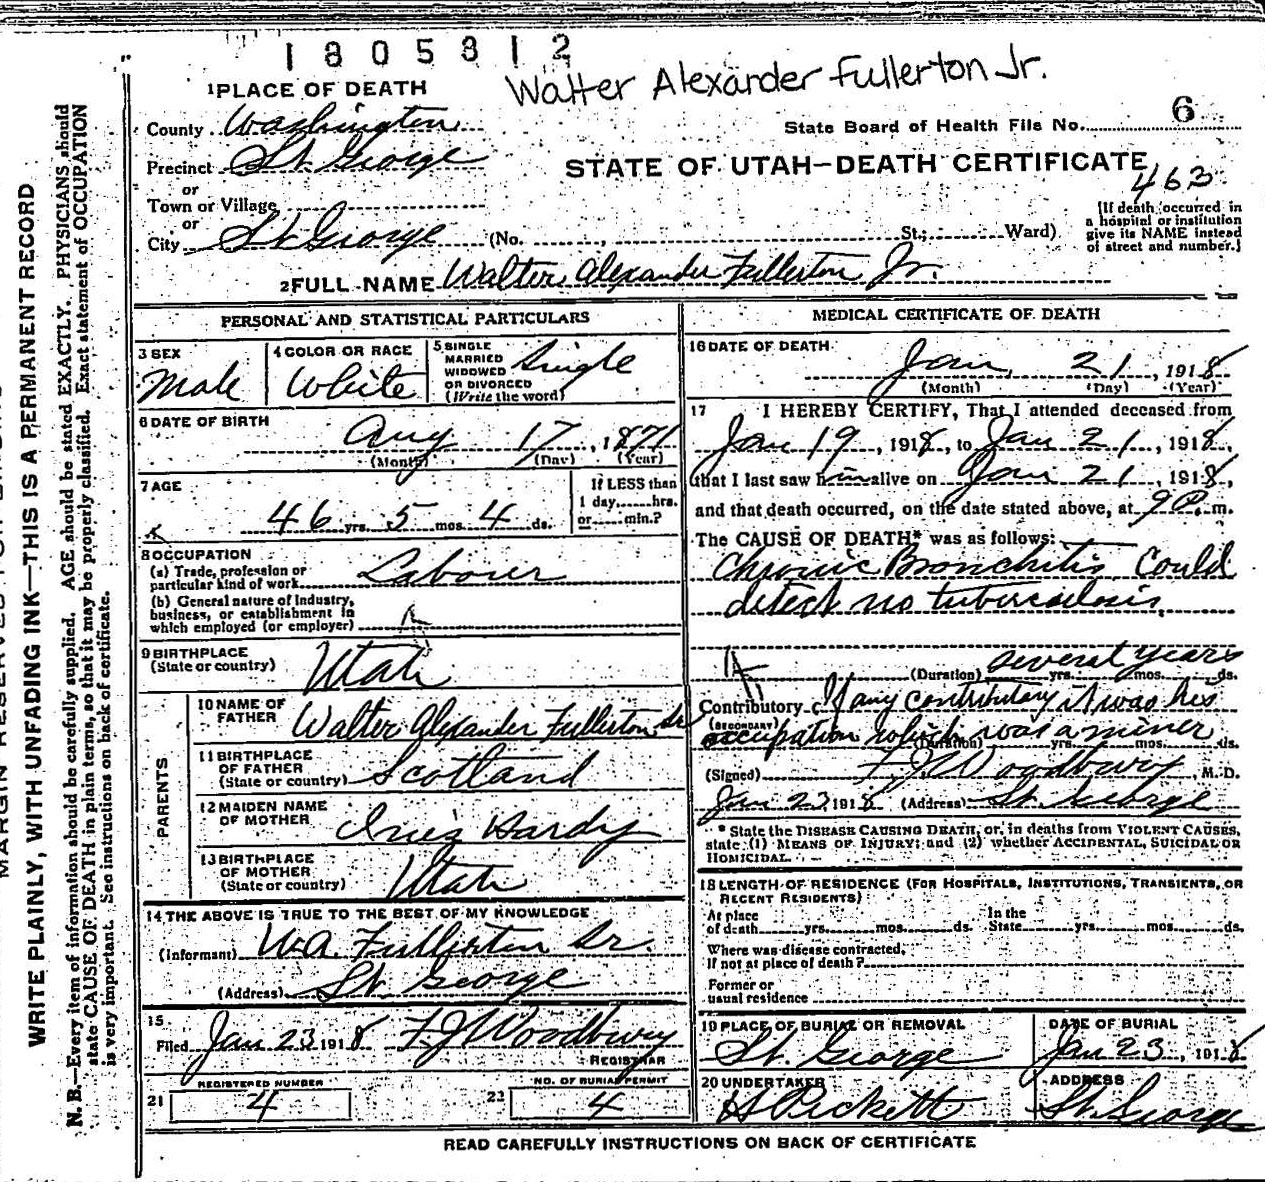 1805812
Walter Alexander Fullerton Jr.
1 PLACE OF DEATH
County Washington
State Board of Health File No. 6
Precinct St. George
STATE OF UTAH—DEATH CERTIFICATE
463
or
Town or Village
or
City St. George (No. , St.; Ward)
[If death occurred in
a hospital or institution
give its NAME instead
of street and number.]
2 FULL NAME Walter Alexander Fullerton Jr.
PERSONAL AND STATISTICAL PARTICULARS
3 SEX
Male
4 COLOR OR RACE
White
5 SINGLE
MARRIED
WIDOWED
OR DIVORCED
(Write the word)
Single
6 DATE OF BIRTH
Aug 17, 1871
(Month) (Day) (Year)
7 AGE
46 yrs. 5 mos. 4 ds.
If LESS than
1 day, hrs.
or min.?
8 OCCUPATION
(a) Trade, profession or
particular kind of work Laborer
(b) General nature of Industry,
business, or establishment in
which employed (or employer)
9 BIRTHPLACE
(State or country) Utah
PARENTS
10 NAME OF
FATHER Walter Alexander Fullerton Sr
11 BIRTHPLACE
OF FATHER
(State or country) Scotland
12 MAIDEN NAME
OF MOTHER Inez Hardy
13 BIRTHPLACE
OF MOTHER
(State or country) Utah
14 THE ABOVE IS TRUE TO THE BEST OF MY KNOWLEDGE
(Informant) W.A. Fullerton Sr.
(Address) St. George
15
Filed Jan 23 1918 F.J. Woodbury
REGISTRAR
REGISTERED NUMBER
21 4
NO. OF BURIAL PERMIT
22 4
MEDICAL CERTIFICATE OF DEATH
16 DATE OF DEATH
Jan. 21, 1918
(Month) (Day) (Year)
17 I HEREBY CERTIFY, That I attended deceased from
Jan 19, 1918, to Jan 21, 1918,
that I last saw him alive on Jan 21, 1918,
and that death occurred, on the date stated above, at 9 P. m.
The CAUSE OF DEATH* was as follows:
Chronic Bronchitis Could
detect no tuberculosis.
(Duration) several years yrs. mos. ds.
Contributory If any contributory it was his
(SECONDARY)
occupation which was a miner
(Duration) yrs. mos. ds.
(Signed) F.J. Woodbury, M.D.
Jan 23 1918 (Address) St. George
* State the DISEASE CAUSING DEATH, or, in deaths from VIOLENT CAUSES,
state (1) MEANS OF INJURY; and (2) whether ACCIDENTAL, SUICIDAL OR
HOMICIDAL.
18 LENGTH OF RESIDENCE (FOR HOSPITALS, INSTITUTIONS, TRANSIENTS, OR
RECENT RESIDENTS)
At place
of death yrs. mos. ds.
In the
State yrs. mos. ds.
Where was disease contracted,
If not at place of death?
Former or
usual residence
19 PLACE OF BURIAL OR REMOVAL
St. George
DATE OF BURIAL
Jan 23, 1918
20 UNDERTAKER
Pickett
ADDRESS
St. George
READ CAREFULLY INSTRUCTIONS ON BACK OF CERTIFICATE
WRITE PLAINLY, WITH UNFADING INK—THIS IS A PERMANENT RECORD
N. B.—Every item of information should be carefully supplied. AGE should be stated EXACTLY. PHYSICIANS should
state CAUSE OF DEATH in plain terms, so that it may be properly classified. Exact statement of OCCUPATION
is very important. See instructions on back of certificate.